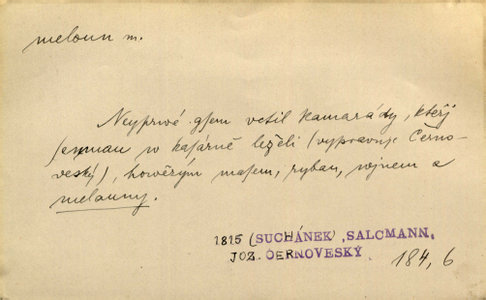 meloun m.
Neyprwé gsem vctil kamarády, kteřj
se mnau w kasárně leželi (vypravuje Černo-
veský), howězým masem, rybau, wjnem a
melauny.
1815 (SUCHÁNEK), SALCMANN,
JOZ. ČERNOVESKÝ
184, 6